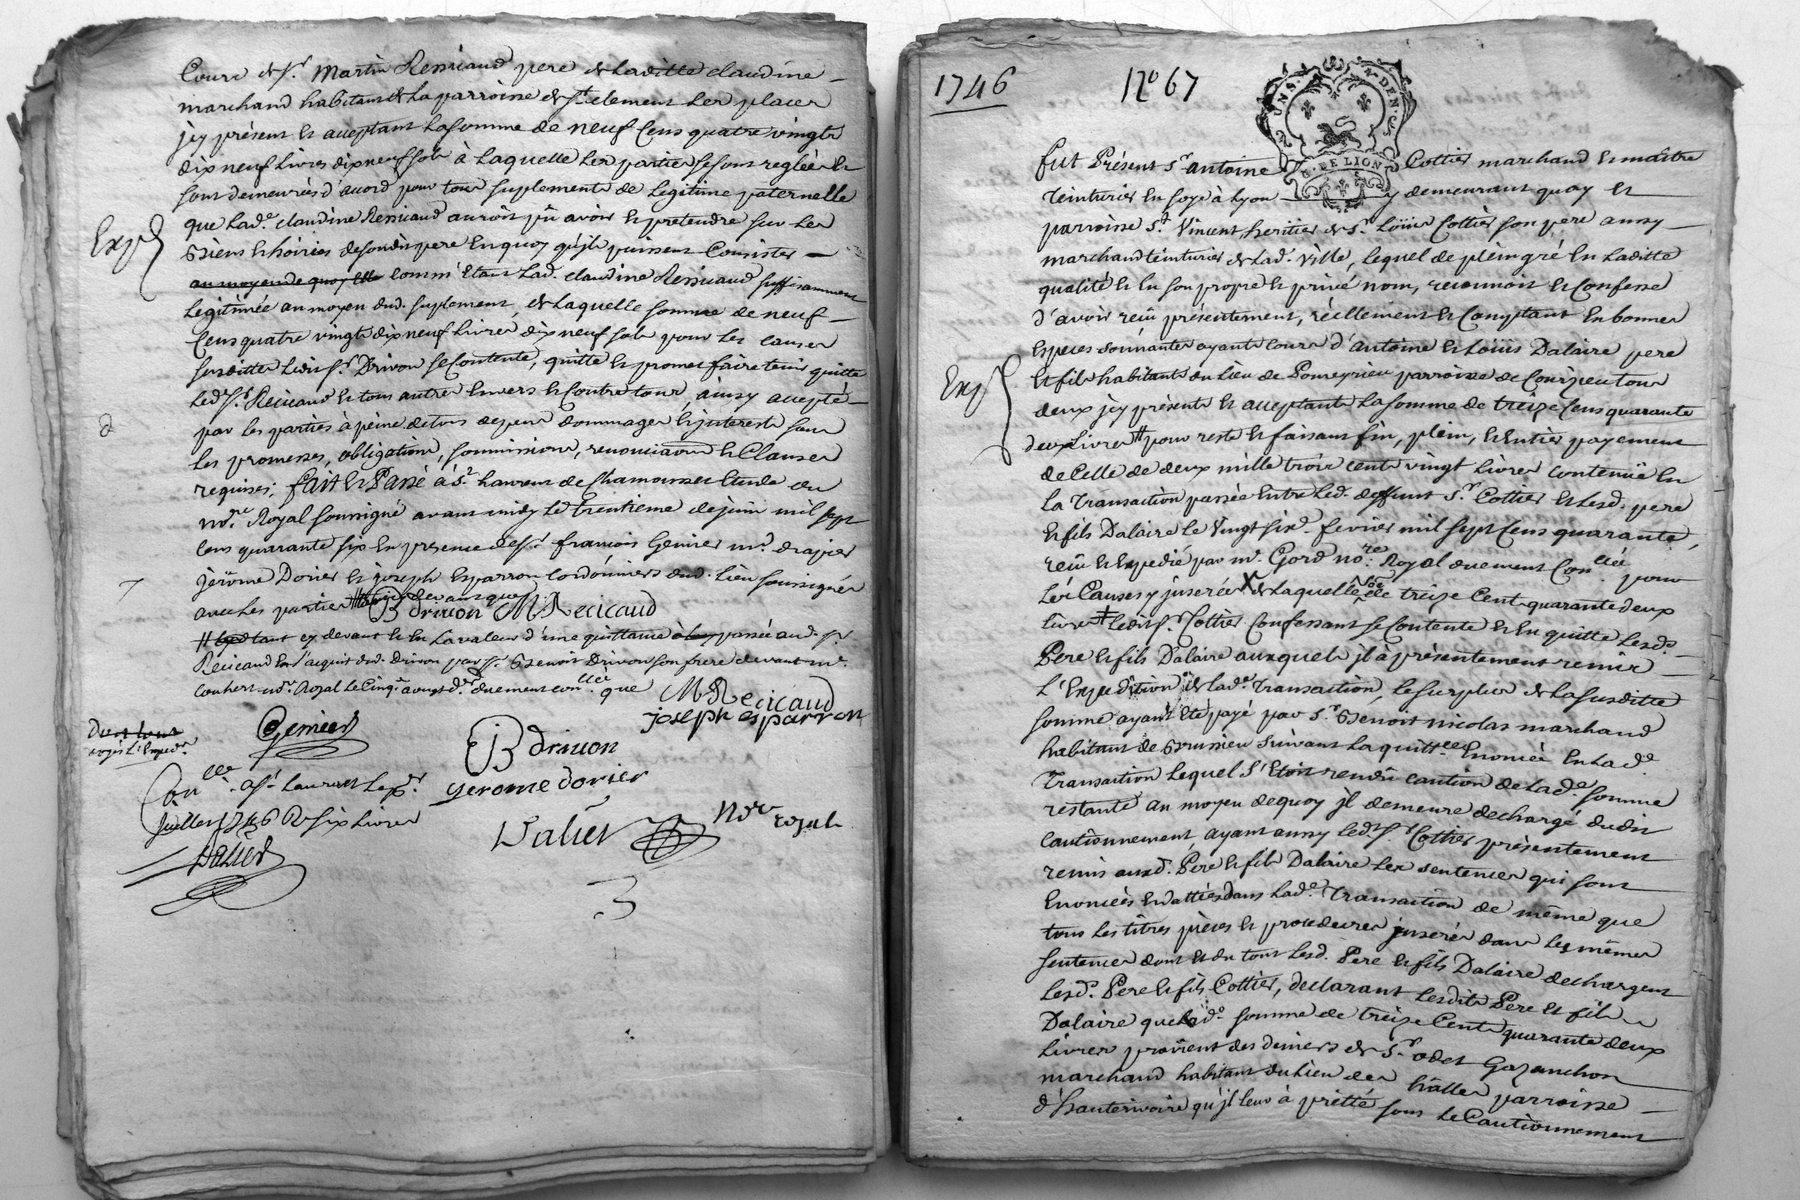 Cours de Sr. Martin Recicaud pere de Laditte claudine
marchand habitant de La parroisse de St. clement Les places
jcy présent et acceptant La somme de neuf Cens quatre vingts
dix neuf Livres dix neuf sols à Laquelle Les parties se sont reglées et
sont demeurées d'acord pour tous suplements de Legitime paternelle
que Lade. claudine Recicaud auroit pû avoir et pretendre sur Les
Biens et hoiries de sondit pere En quoy qu'jls puissent Consister
au moyen de quoy elle comm'Etant Lad. claudine Recicaud suffisamment
Legitimée au moyen dud. suplement, de Laquelle somme de neuf
Cens quatre vingts dix neuf Livres dix neuf sols pour Les causes
susdittes Ledit Sr. Drivon se Contente, quitte et promet faire tenir quitte
Led. Sr. Recicaud et tous autres Envers et Contre tous, ainsy accepté
par Les parties à peine de tous depens dommages et jnterests sous
Les promesses, obligations, soumissions, renonciations et Clauses
requises; fait et Passé à St. Laurent de Chamousset Etude du
nore. Royal soussigné avant midy Le trentieme de juin mil sept
Cens quarante six En presence de Sr. francois Genier md. drapier
jerôme Dorier et joseph Esparron cordonniers dud. Lieu soussignés
avec Les parties
B drivon M Recicaud
cy devant et En La valeur d'une quittance passée aud. Sr.
Recicaud En L'acquit dud. Drivon par Sr. Benoit Drivon son frere devant me.
nore. Royal Le Cinqe. avril der. duement conllée. que
M Recicaud
joseph esparron
Genier
B drivon
gerome dorier
Valier
Nore royal
Expd
Conllé. a St. Laurent Le per.
juillet 1746 R six Livres
Valier
1746
No 67
GEN. DE LION
fut Présent Sr antoine Cottier marchand et maître
teinturier en soye à Lyon y demeurant quay et
parroisse St. Vincent, heritier de Sr. Loüis Cottier son pere aussy
marchand teinturier de Lad. Ville, Lequel de plein gré En Laditte
qualité et En son propre et privé nom, reconnoit et Confesse
d'avoir reçû présentement, réellement et Comptant En bonnes
Especes sonnantes ayants cours d'antoine et Loüis Dalaire pere
et fils habitants du Lieu de Pomeyrieu parroisse de Courzieu tous
deux jcy présents et acceptants La somme de treize Cens quarante
deux Livres pour reste et faisant fin, plein, et Entier payement
de Celle de deux mille trois cents vingt Livres contenüe En
La Transaction passée Entre Led. deffunt Sr. Cottier et Lesd. pere
et fils Dalaire Le Vingt six fevrier mil sept Cens quarante,
reçû et Expedié par me. Gord nore. Royal duement Conllée pour
Les Causes y jnserées de Laquelle treize Cents quarante deux
Livres Ledit Sr. Cottier Confessant se Contente et En quitte Lesds.
Pere et fils Dalaire auxquels jl à présentement remis
L'Expedition de Lade. Transaction, Le surplus de La susditte
somme ayant Eté payé par Sr. Benoit nicolas marchand
habitant de Brussieu suivant La quittce. Enoncée En Lade.
Transaction Lequel S'Etoit rendu caution de Lade. somme
restante au moyen de quoy jl demeure dechargé dudit
cautionnement, ayant aussy Led. Sr. Cottier présentement
remis auxd. Pere et fils Dalaire Les sentences qui sont
Enoncées et dattées dans Lade. Transaction de même que
tous Les titres pieces et procedures jnserés dans Les mêmes
sentences dont et du tout Lesd. Pere et fils Dalaire dechargent
Lesd. Pere et fils Cottier, declarant Lesdits Pere et fils
Dalaire que Lade. somme de treize Cents quarante deux
Livres provient des deniers de Sr. odet Gazanchon
marchand habitant du Lieu des halles parroisse
d'hauterivoire qu'jl Leur à pretté sous Le Cautionnement
Expd